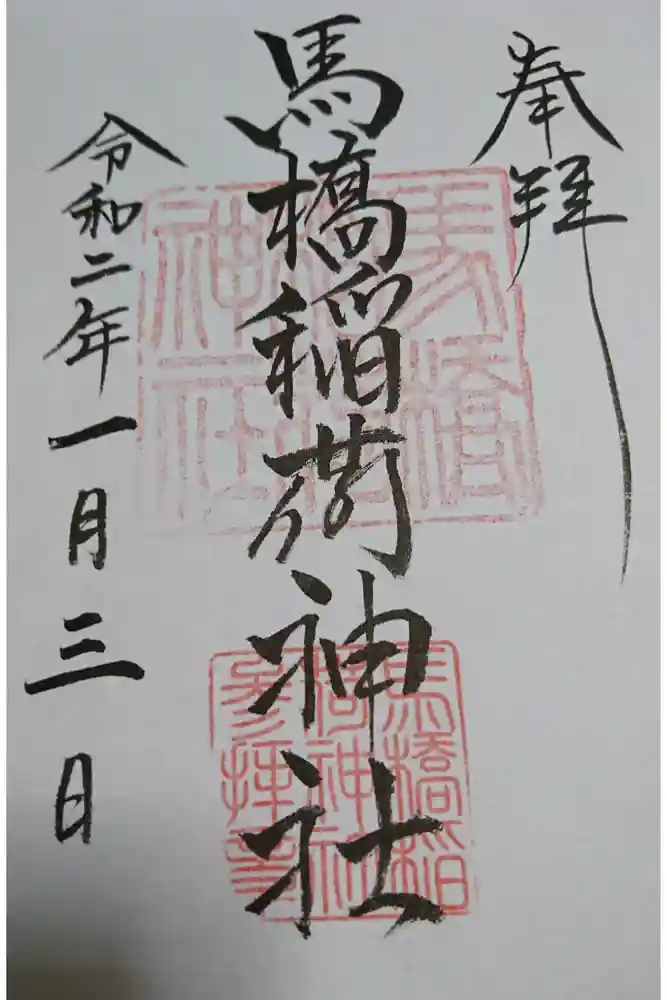 奉拝
馬橋稲荷神社
令和二年一月三日
馬橋稲
荷神社
参拝章